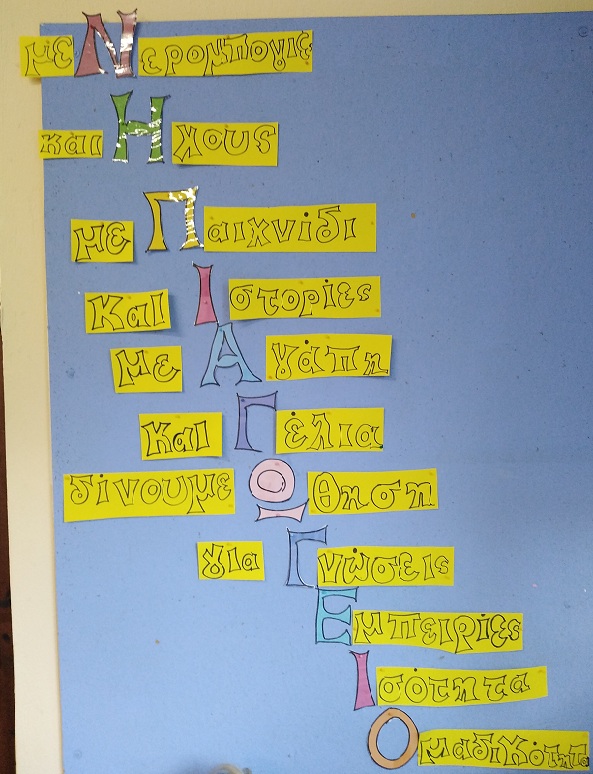 με Νερομπογιές
και Ήχους
με Παιχνίδι
Και Ιστορίες
με Αγάπη
Και Γέλια
δίνουμε Ώθηση
για Γνώσεις
Εμπειρίες
Ισότητα
Ομαδικότητα